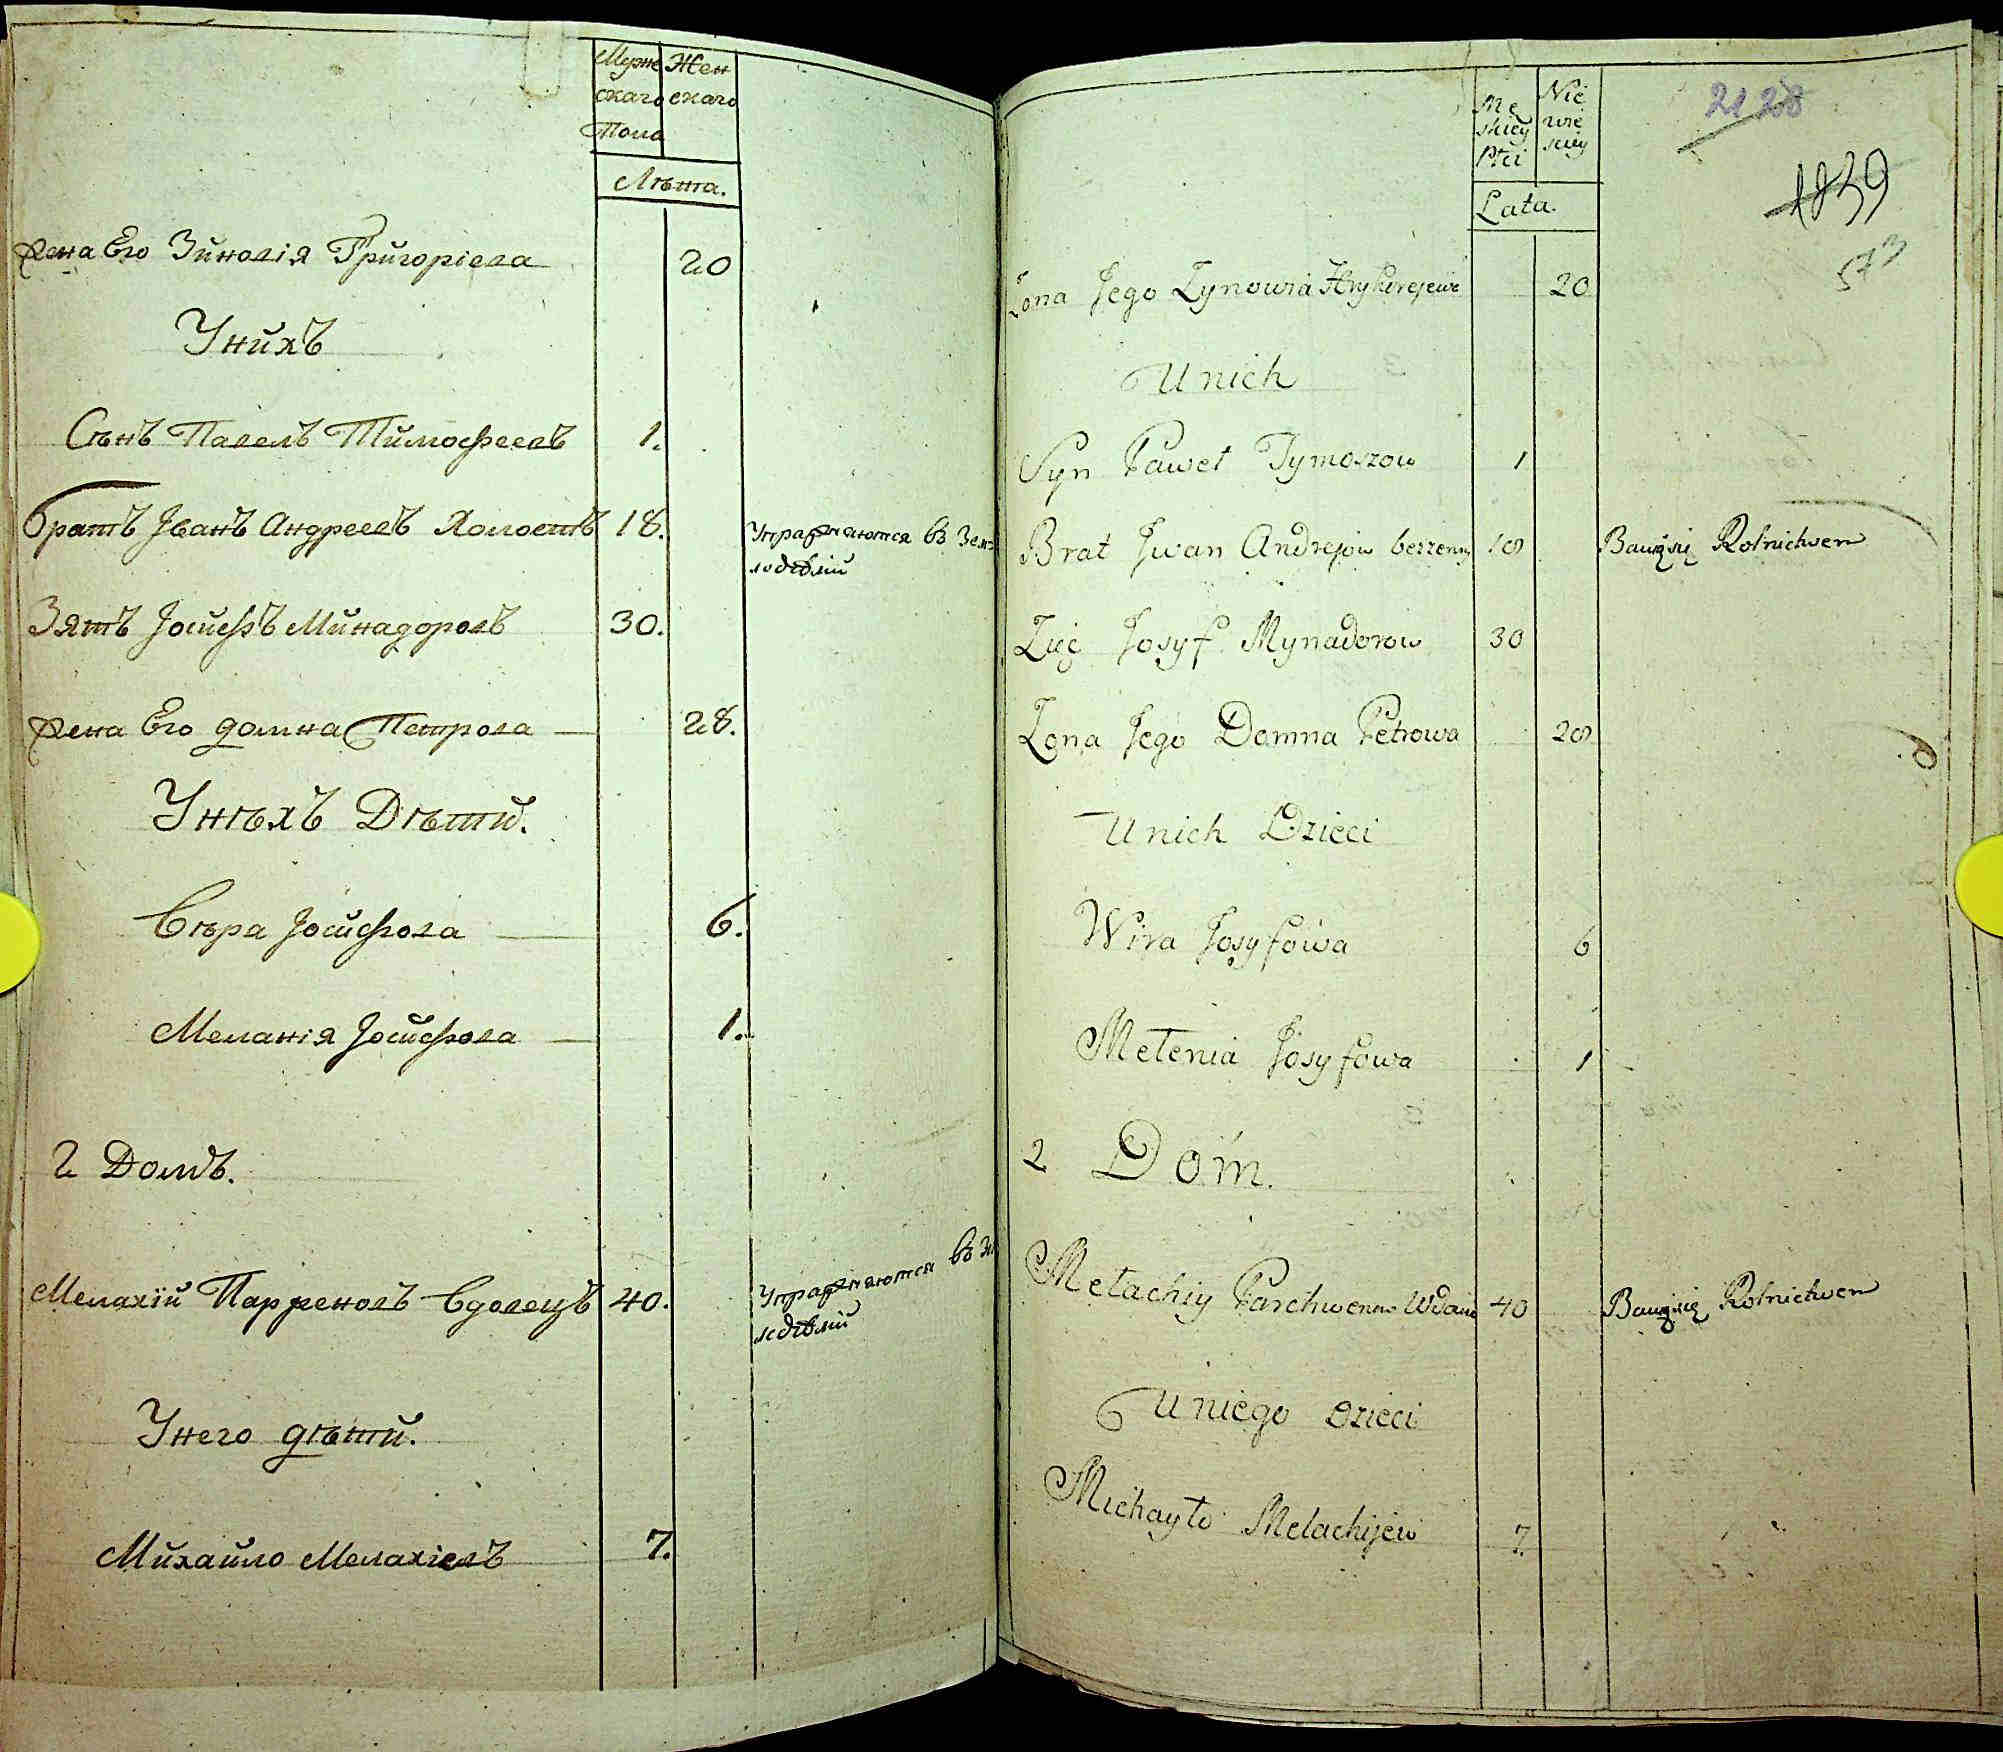 Муже Жен
скаго скаго
Пола
Лѣта.
Жена Его Зиновія Григоріева 20
Унихъ
Сынъ Павелъ Тимофеевъ 1.
братъ Іванъ Андреевъ Холостъ 18. Упражняются въ Зем
ледѣлій
Зять Іосифъ Минадоровъ 30.
Жена Его домна Петрова 28.
Унѣхъ Дѣти.
Вѣра Іосифова 6.
Меланія Іосифова 1.
2 Домъ.
Мелахій Парфеновъ Вдовецъ 40. Упражняются въ Зем
ледѣлій
Унего дѣти.
Михайло Мелахіевъ 7.
Mę Nie
skiey wie
Płci sciey
Lata.
21 28
1839
573
Żona Jego Zynowia Hryhorejewa 20
U nich
Syn Paweł Tymoszow 1
Brat Jwan Andrejow bezzenny 18 Bawią się Rolnictwem
Zięć Josyf Mynadorow 30
Zona Jego Domna Petrowa 28
U nich Dzieci
Wira Josyfowa 6
Mełenia Josyfowa 1
2 Dom.
Mełachiy Parchwenow Wdowiec 40 Bawią się Rolnictwem
U niego Dzieci
Michayło Melachijew 7.